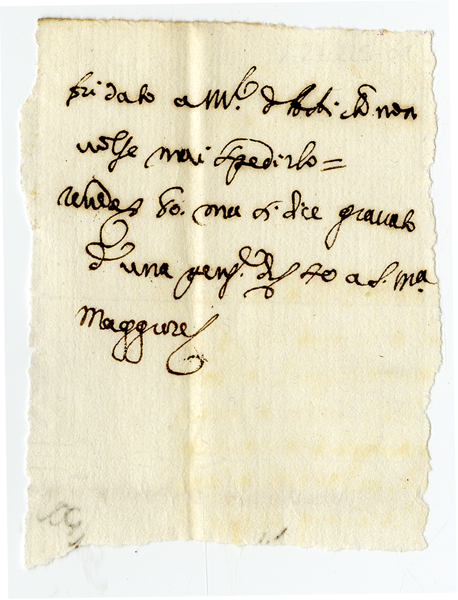 fu dato a Mr. che non
volse mai spedirlo =
rende 80. ma si dice gravato
d'una pens.e di 40 a S. Ma.
Maggiore